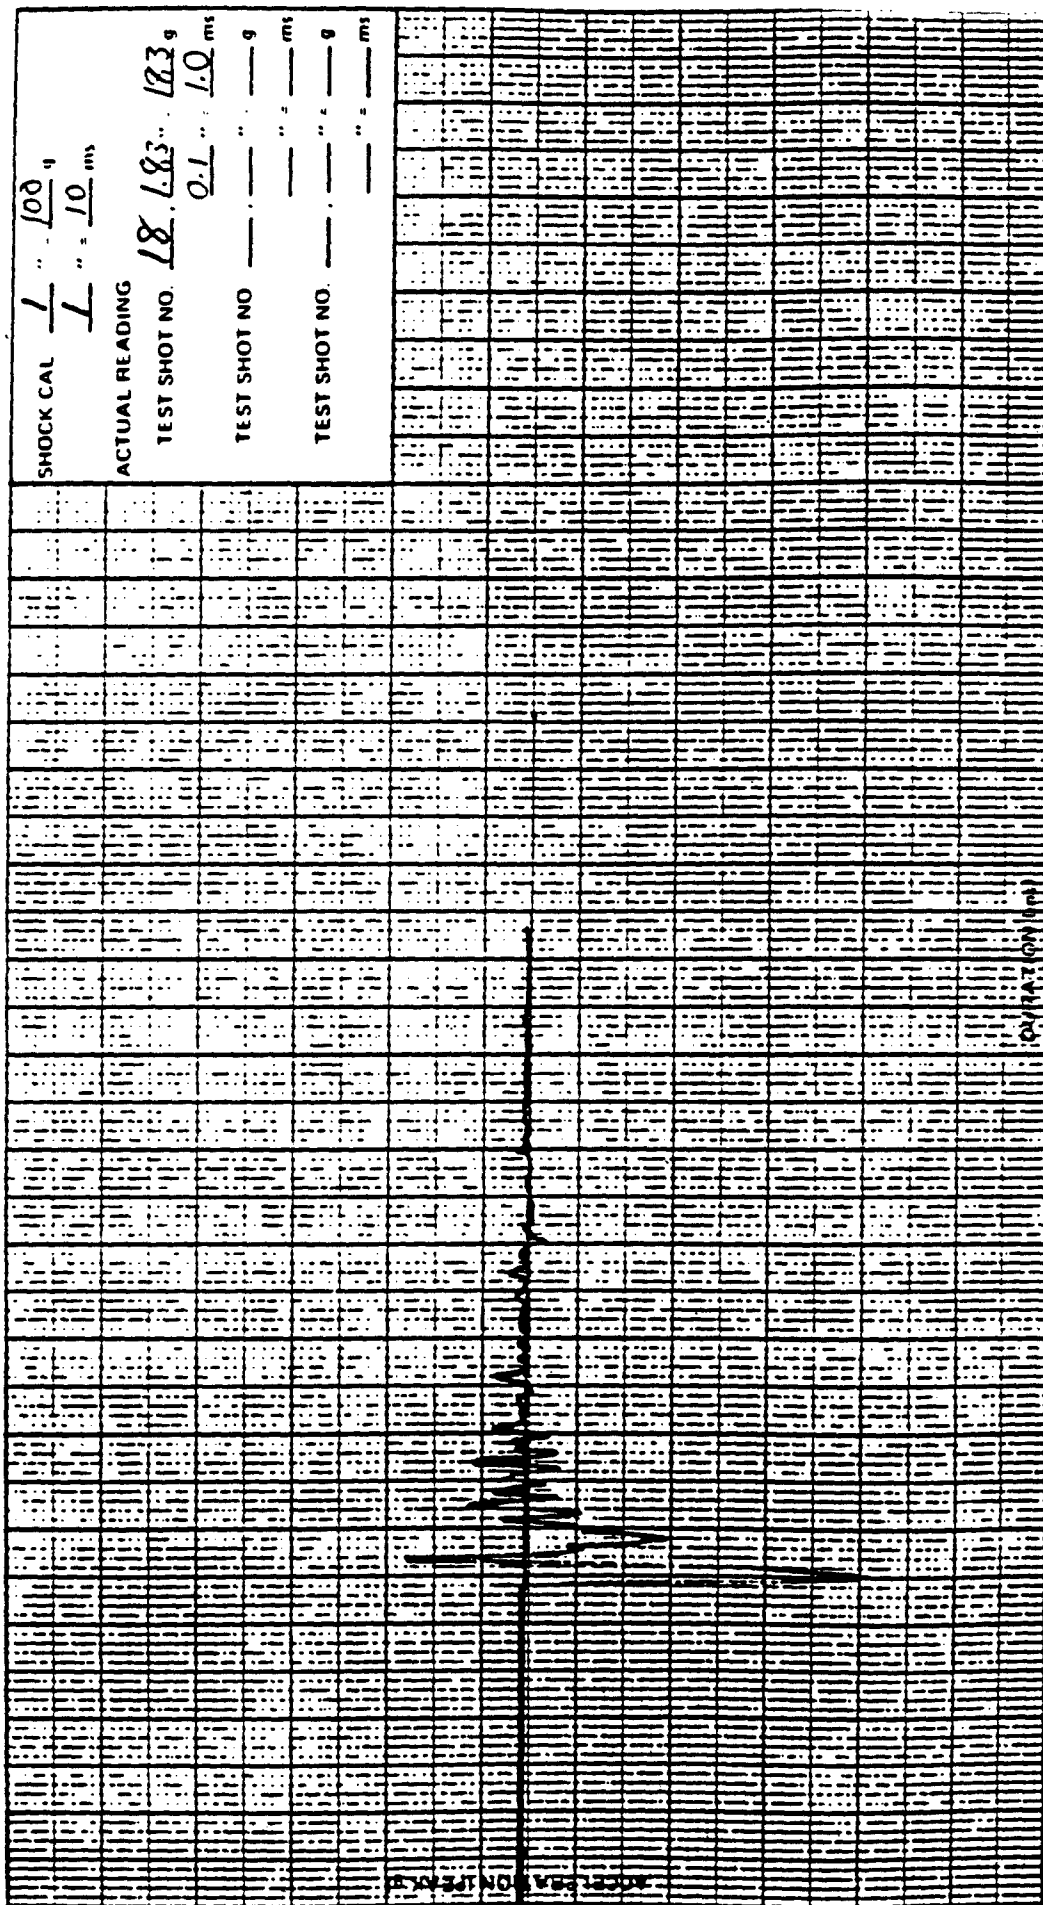 SHOCK CAL 1 " - 100 g
1 " = 10 ms
ACTUAL READING
TEST SHOT NO. 18 . 1.83 " . 183 g
0.1 " = 1.0 ms
TEST SHOT NO ____ . ____ " . ____ g
____ " = ____ ms
TEST SHOT NO. ____ . ____ " = ____ g
____ " = ____ ms
DURATION (ms)
ACCELERATION (PEAK g